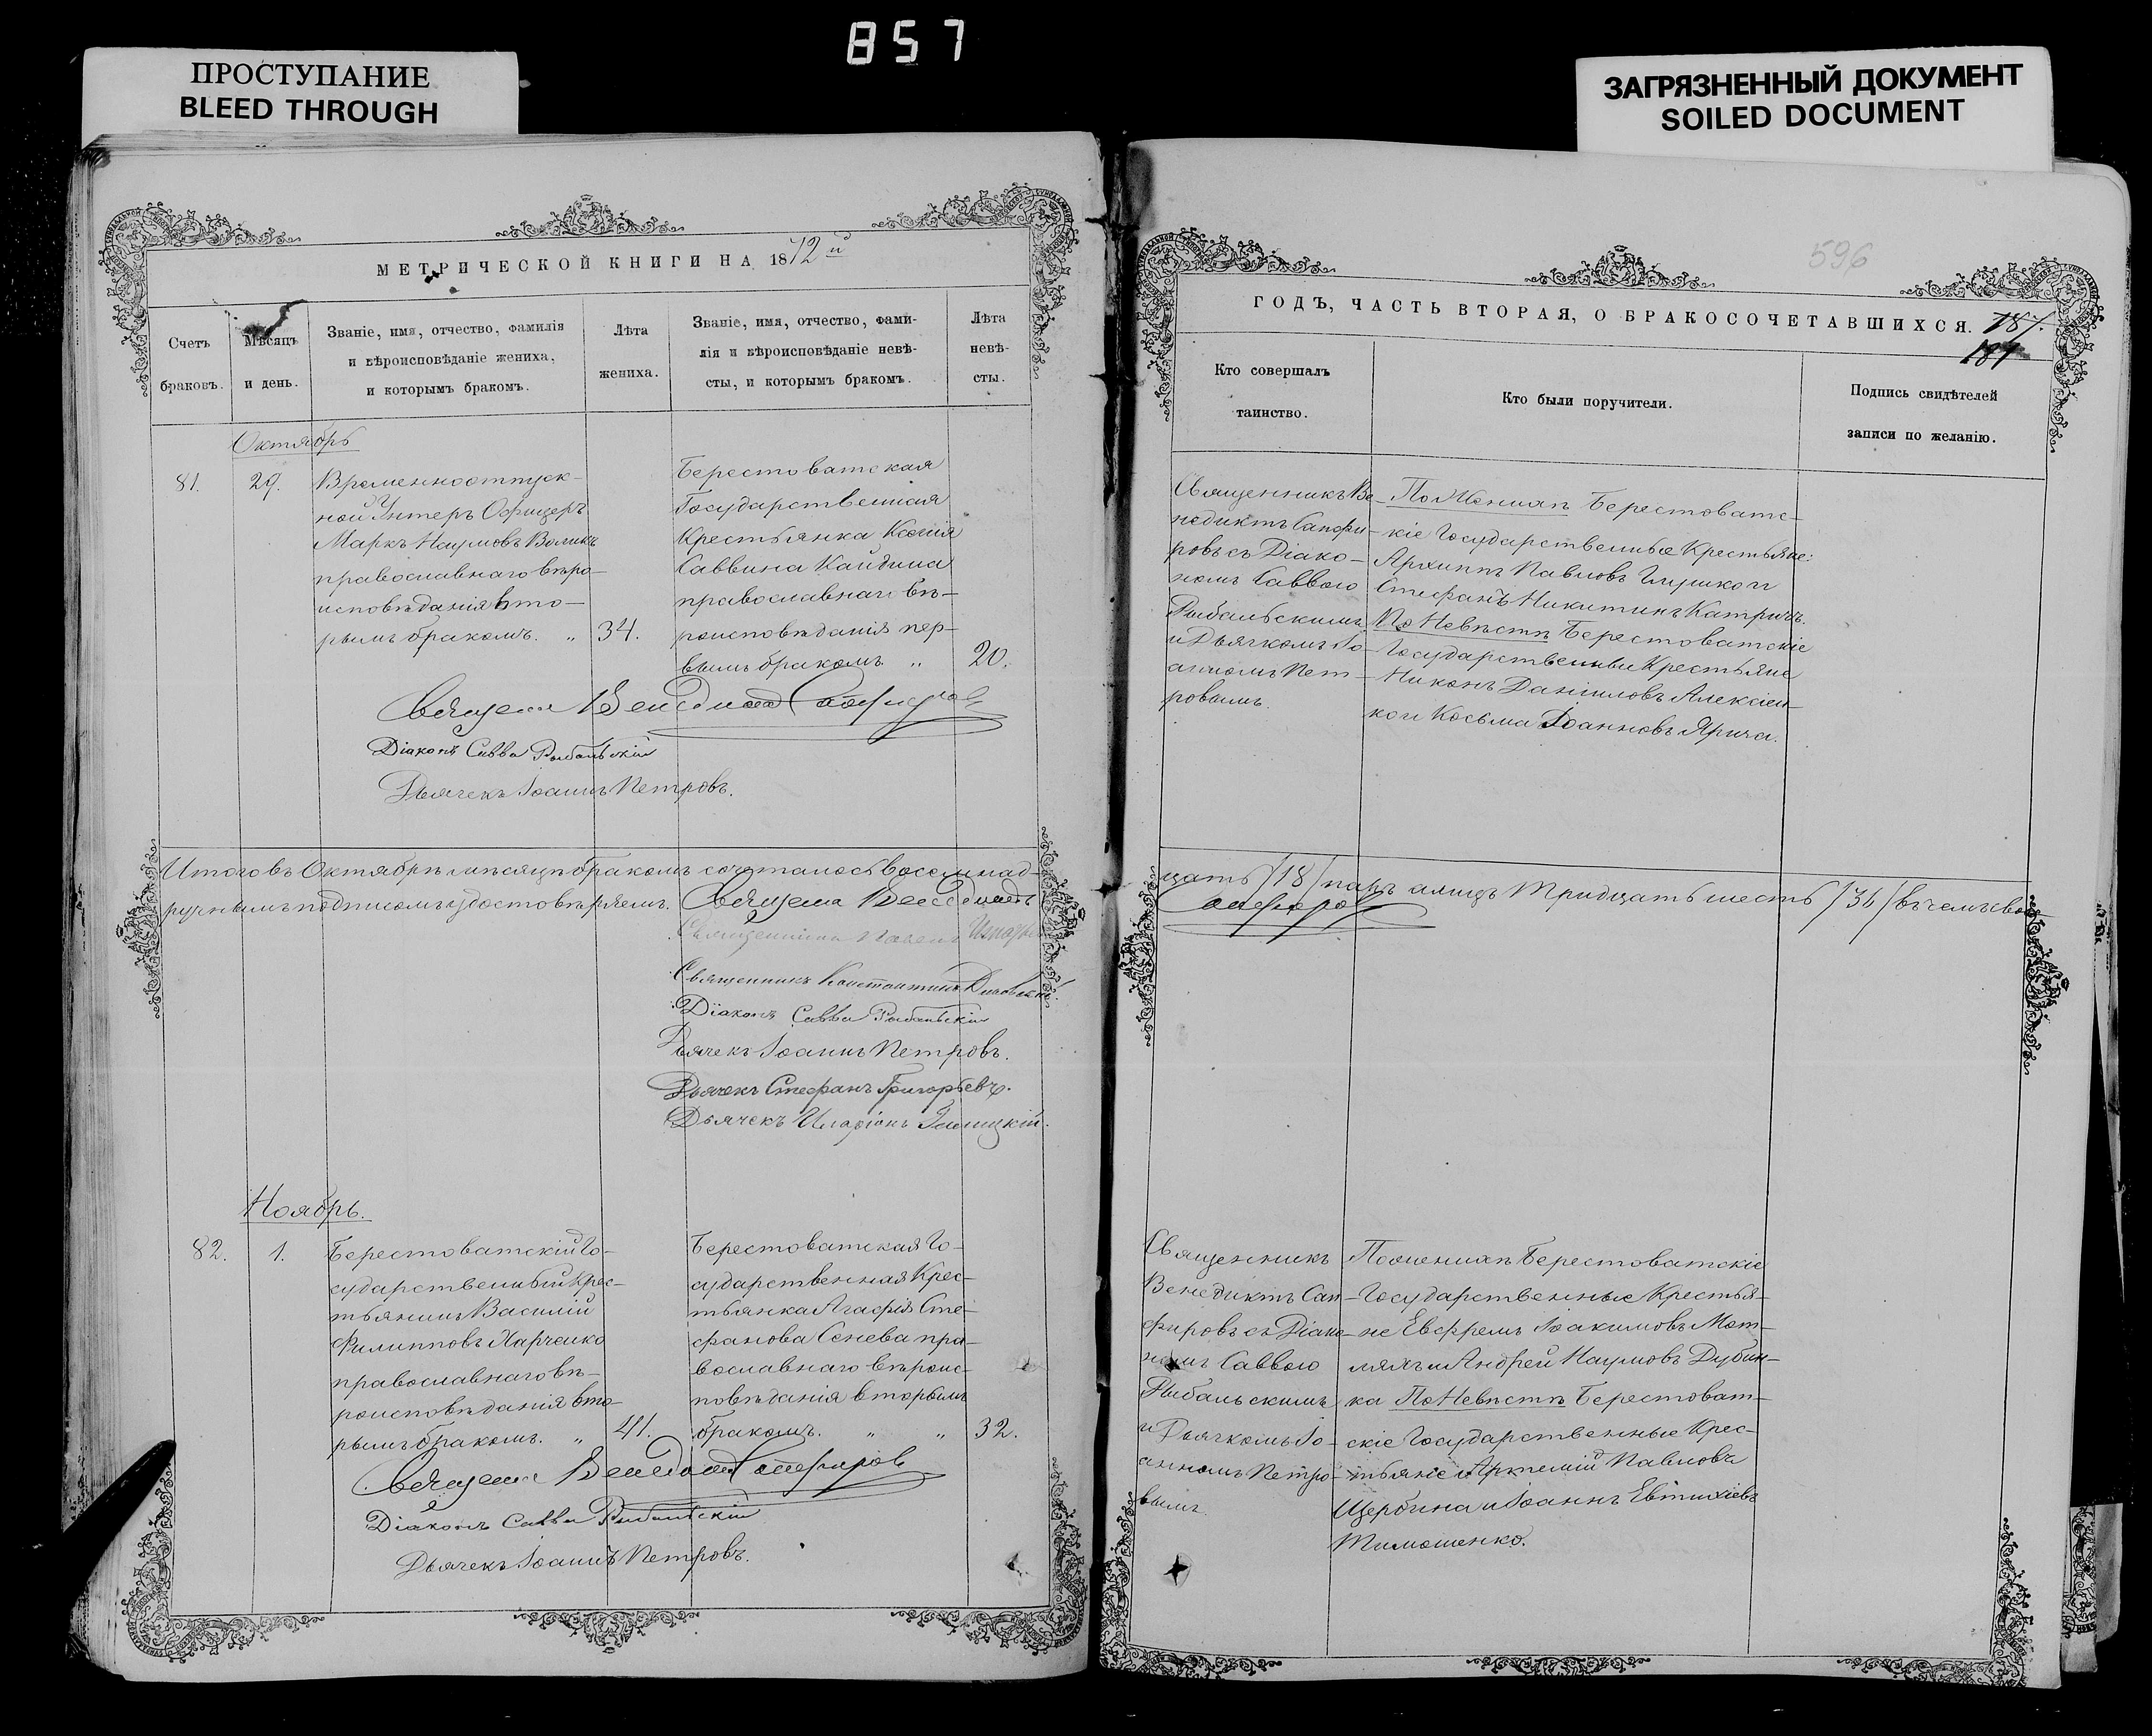 857
ПРОСТУПАНИЕ
BLEED THROUGH
ЗАГРЯЗНЕННЫЙ ДОКУМЕНТ
SOILED DOCUMENT
МЕТРИЧЕСКОЙ КНИГИ НА 1872й
Счетъ
браковъ.
Мѣсяцъ
и день.
Званіе, имя, отчество, фамилія
и вѣроисповѣданіе жениха,
и которымъ бракомъ.
Лѣта
жениха.
Званіе, имя, отчество, фами-
лія и вѣроисповѣданіе невѣ-
сты, и которымъ бракомъ.
Лѣта
невѣ-
сты.
Октябрь
81.
29.
Временноотпуск-
ной Унтеръ Офицеръ
Маркъ Наумовъ Воликъ
православнаго вѣро-
исповѣданія вто-
рымъ бракомъ. „
34.
Берестоватская
Государственная
Крестьянка Ксенія
Саввина Кайдина
православнаго вѣ-
роисповѣданія пер-
вымъ бракомъ „
20.
Священ Венедиктъ Сапфировъ
Діаконъ Савва Рыбальскій
Дьячекъ Іоаннъ Петровъ.
Итого въ Октябрѣ мѣсяцѣ бракомъ сочеталось восемнад-
ручнымъ подписомъ удостовѣряемъ. Священ Венедиктъ
Священникъ Павелъ
Священникъ Константинъ
Діаконъ Савва Рыбальскій
Дьячекъ Іоаннъ Петровъ.
Дьячекъ Стефанъ Григорьевъ.
Дьячекъ Иларіонъ
Ноябрь.
82.
1.
Берестоватскій Го-
сударственный Крес-
тьянинъ Василій
Филипповъ Харченко
православнаго вѣ-
роисповѣданія вто-
рымъ бракомъ. „
41.
Берестоватская Го-
сударственная Крес-
тьянка Агафія Сте-
фанова Сенева пра-
вославнаго вѣроис-
повѣданія вторымъ
бракомъ. „ „
32.
Священ Венедиктъ Сапфировъ
Діаконъ Савва Рыбальскій
Дьячекъ Іоаннъ Петровъ.
596
ГОДЪ, ЧАСТЬ ВТОРАЯ, О БРАКОСОЧЕТАВШИХСЯ. 187.
Кто совершалъ
таинство.
Кто были поручители.
Подпись свидѣтелей
записи по желанію.
Священникъ Ве-
недиктъ Сапфи-
ровъ съ Діако-
номъ Саввою
Рыбальскимъ
и Дьячкомъ Іо-
анномъ Пет-
ровымъ.
По Женихѣ Берестоватс-
кіе Государственные Крестьяне:
Архиппъ Павловъ Глушко и
Стефанъ Никитинъ Катричъ.
По Невѣстѣ Берестоватскіе
Государственные Крестьяне
Никонъ Даніиловъ Алексіен-
ко и Косьма Іоанновъ Ярича.
цать /18/ паръ а лицъ Тридцать шесть /36/ въ чемъ свое-
Сапфировъ
Священникъ
Венедиктъ Сап-
фировъ съ Діако-
номъ Саввою
Рыбальскимъ
и Дьячкомъ Іо-
анномъ Петро-
вымъ.
По женихѣ Берестоватскіе
Государственные Крестья-
не Евфремъ Іоакимовъ Мот-
ляхъ и Андрей Наумовъ Дубин-
ка По Невѣстѣ Берестоват-
скіе Государственные Крес-
тьяне Артемій Павловъ
Щербина и Іоаннъ Евтихіевъ
Тимошенко.